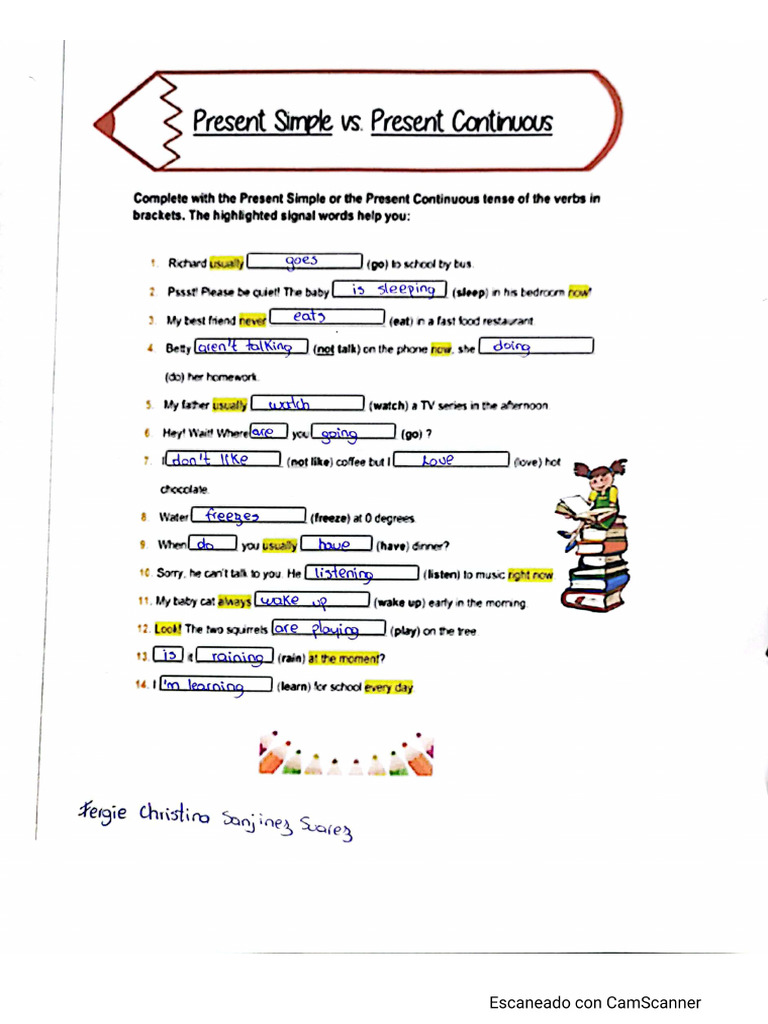 Present Simple vs. Present Continuous
Complete with the Present Simple or the Present Continuous tense of the verbs in
brackets. The highlighted signal words help you:
1. Richard usually goes (go) to school by bus.
2. Pssst! Please be quiet! The baby is sleeping (sleep) in his bedroom now!
3. My best friend never eats (eat) in a fast food restaurant.
4. Betty aren't talking (not talk) on the phone now, she doing
(do) her homework.
5. My father usually watch (watch) a TV series in the afternoon.
6. Hey! Wait! Where are you going (go) ?
7. I don't like (not like) coffee but I Love (love) hot
chocolate.
8. Water freezes (freeze) at 0 degrees.
9. When do you usually have (have) dinner?
10. Sorry, he can't talk to you. He listening (listen) to music right now.
11. My baby cat always wake up (wake up) early in the morning.
12. Look! The two squirrels are playing (play) on the tree.
13. is it raining (rain) at the moment?
14. I 'm learning (learn) for school every day.
Fergie Christina Sanjinez Suarez
Escaneado con CamScanner